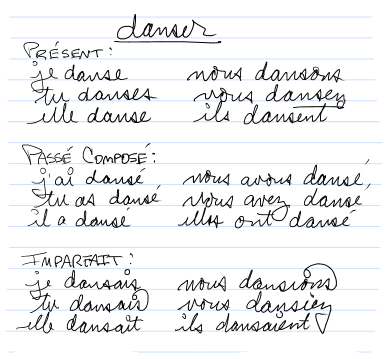 danser
PRÉSENT:
je danse nous dansons
tu danses vous dansez
elle danse ils dansent
PASSÉ COMPOSÉ:
j'ai dansé nous avons dansé
tu as dansé vous avez dansé
il a dansé elles ont dansé
IMPARFAIT:
je dansais nous dansions
tu dansais vous dansiez
elle dansait ils dansaient